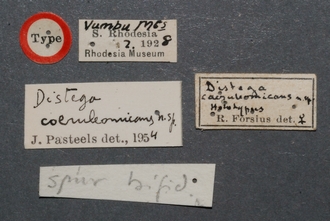 Type
Vumbu Mts
S. Rhodesia
2. 1928
Rhodesia Museum
Distega
coeruleomicans n. sp.
J. Pasteels det., 1954
Distega
caeruleomicans n. sp.
Holotypus
R. Forsius det. ♀
spur bifid: